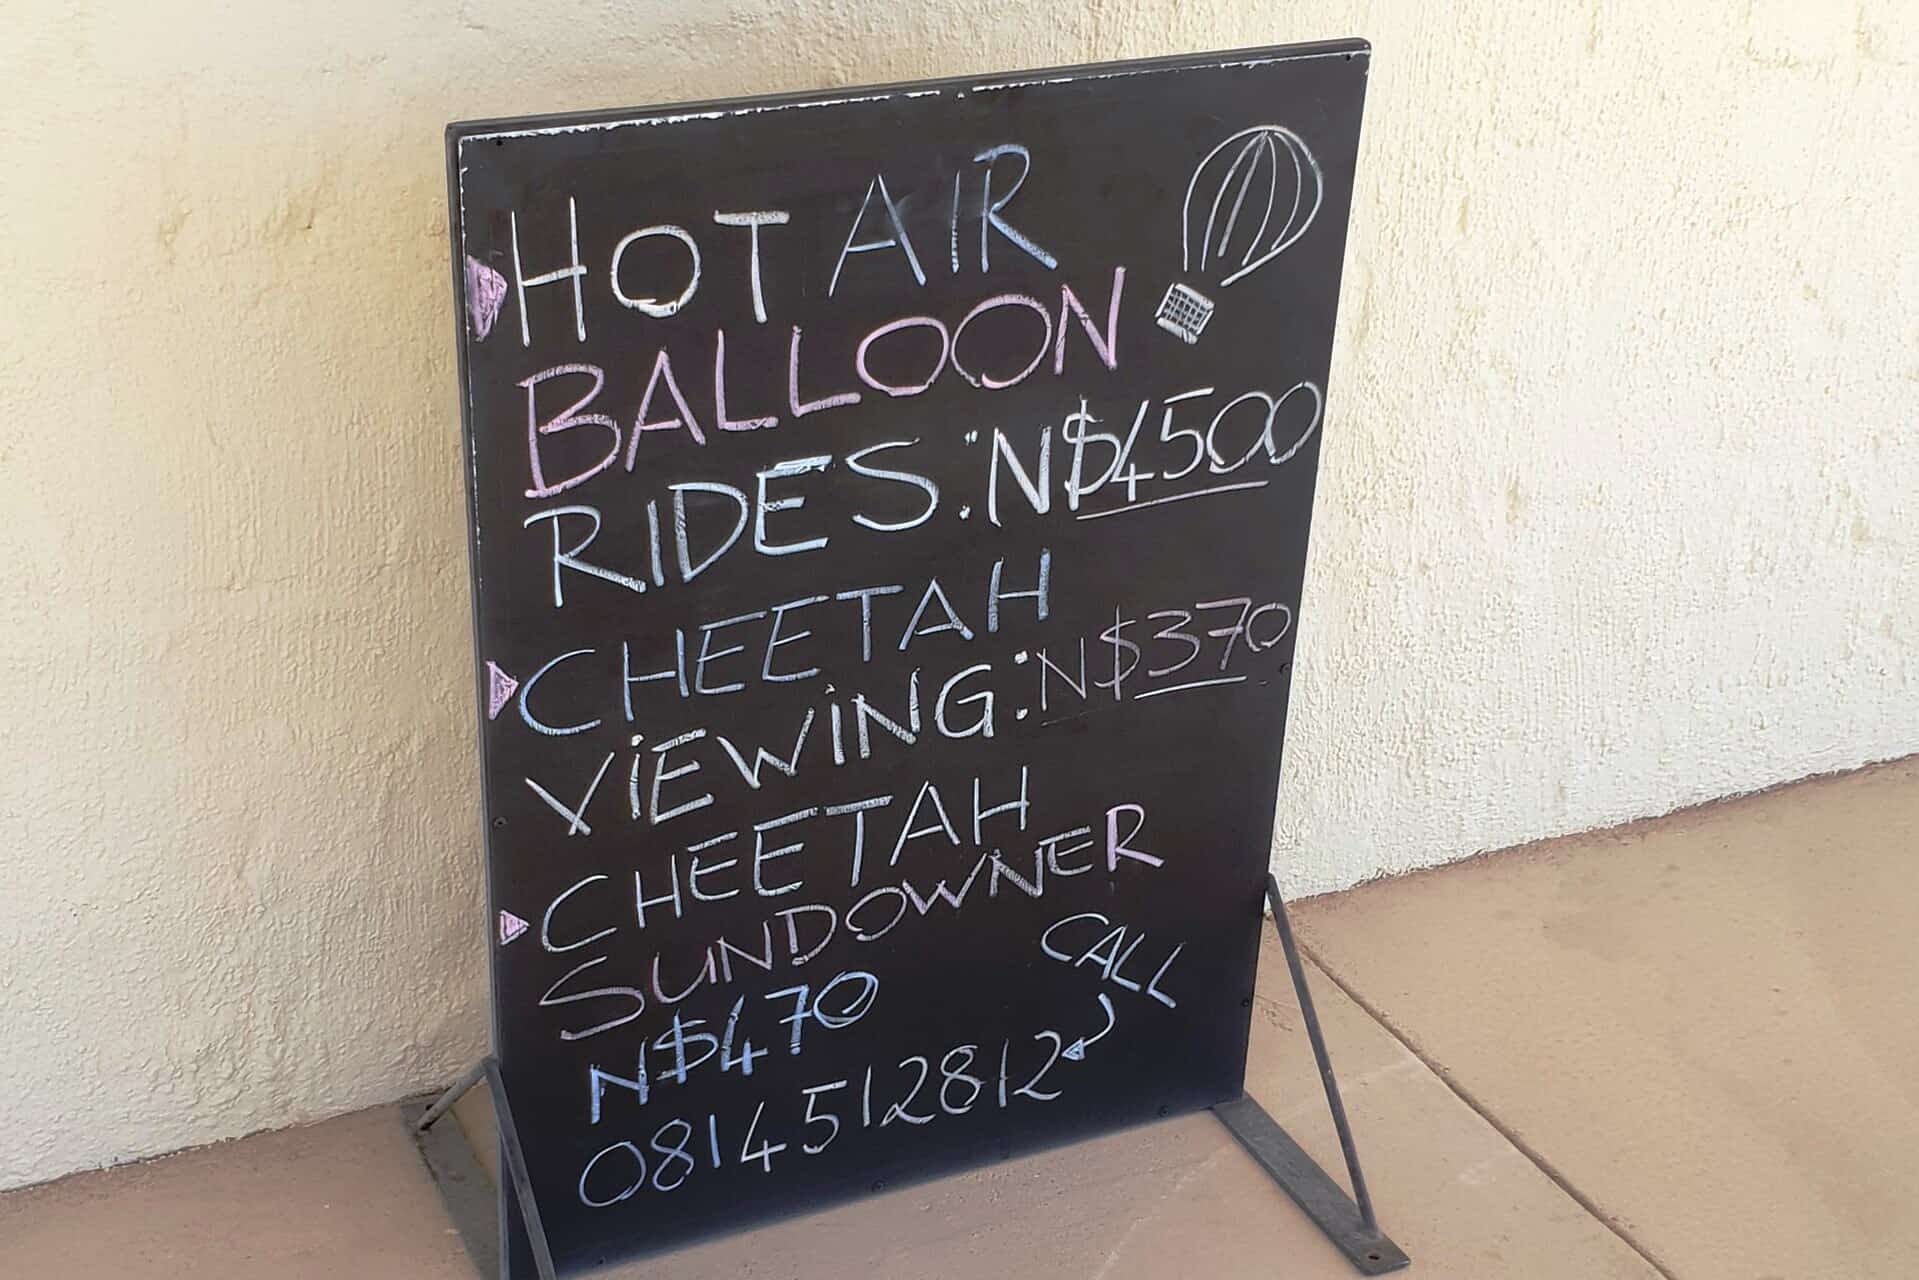 HOT AIR
BALLOON
RIDES: N$4500
CHEETAH
VIEWING: N$370
CHEETAH
SUNDOWNER
N$470
CALL
0814512812